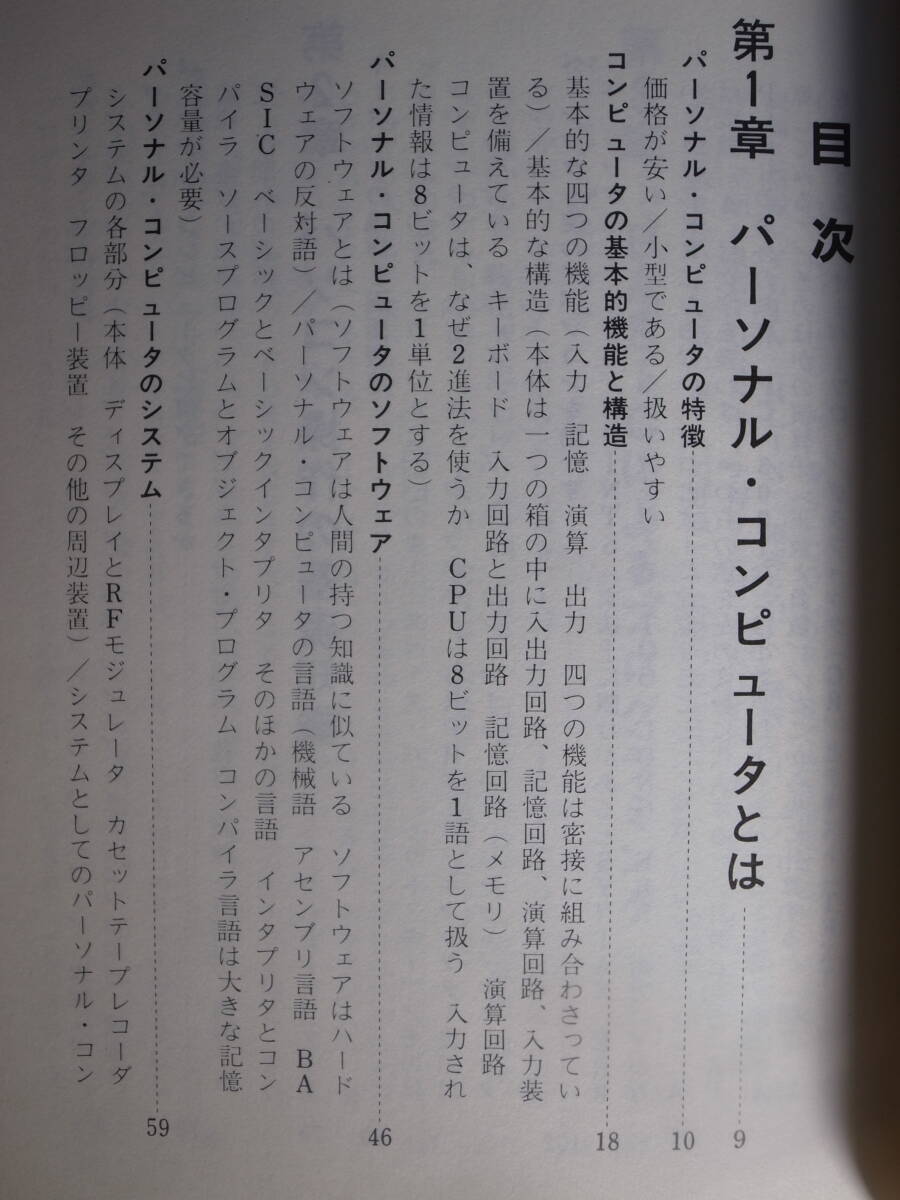 目次
第1章 パーソナル・コンピュータとは 9
パーソナル・コンピュータの特徴 10
価格が安い/小型である/扱いやすい
コンピュータの基本的機能と構造 18
基本的な四つの機能(入力 記憶 演算 出力 四つの機能は密接に組み合わさってい
る)/基本的な構造(本体は一つの箱の中に入出力回路、記憶回路、演算回路、入力装
置を備えている キーボード 入力回路と出力回路 記憶回路(メモリ) 演算回路
コンピュータは、なぜ2進法を使うか CPUは8ビットを1語として扱う 入力され
た情報は8ビットを1単位とする)
パーソナル・コンピュータのソフトウェア 46
ソフトウェアとは(ソフトウェアは人間の持つ知識に似ている ソフトウェアはハード
ウェアの反対語)/パーソナル・コンピュータの言語(機械語 アセンブリ言語 BA
SIC ベーシックとベーシックインタプリタ そのほかの言語 インタプリタとコン
パイラ ソースプログラムとオブジェクト・プログラム コンパイラ言語は大きな記憶
容量が必要)
パーソナル・コンピュータのシステム 59
システムの各部分(本体 ディスプレイとRFモジュレータ カセットテープレコーダ
プリンタ フロッピー装置 その他の周辺装置)/システムとしてのパーソナル・コン